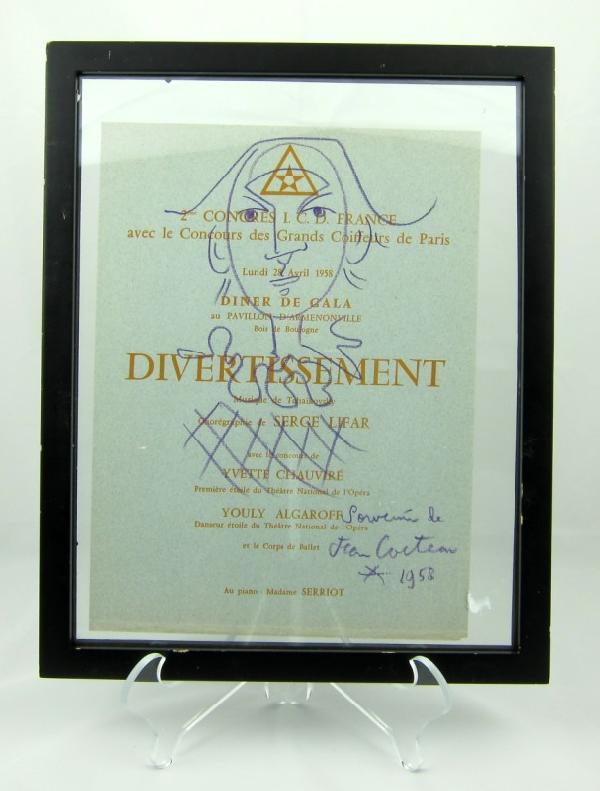 2me CONGRÈS I. C. D. FRANCE
avec le Concours des Grands Coiffeurs de Paris
Lundi 28 Avril 1958
DINER DE GALA
au PAVILLON D'ARMENONVILLE
Bois de Boulogne
DIVERTISSEMENT
Musique de Tchaïkovsky
Chorégraphie de SERGE LIFAR
avec le concours de
YVETTE CHAUVIRÉ
Première étoile du Théâtre National de l'Opéra
YOULY ALGAROFF
Souvenir de
Danseur étoile du Théâtre National de l'Opéra
et le Corps de Ballet
Jean Cocteau
1958
Au piano : Madame SERRIOT